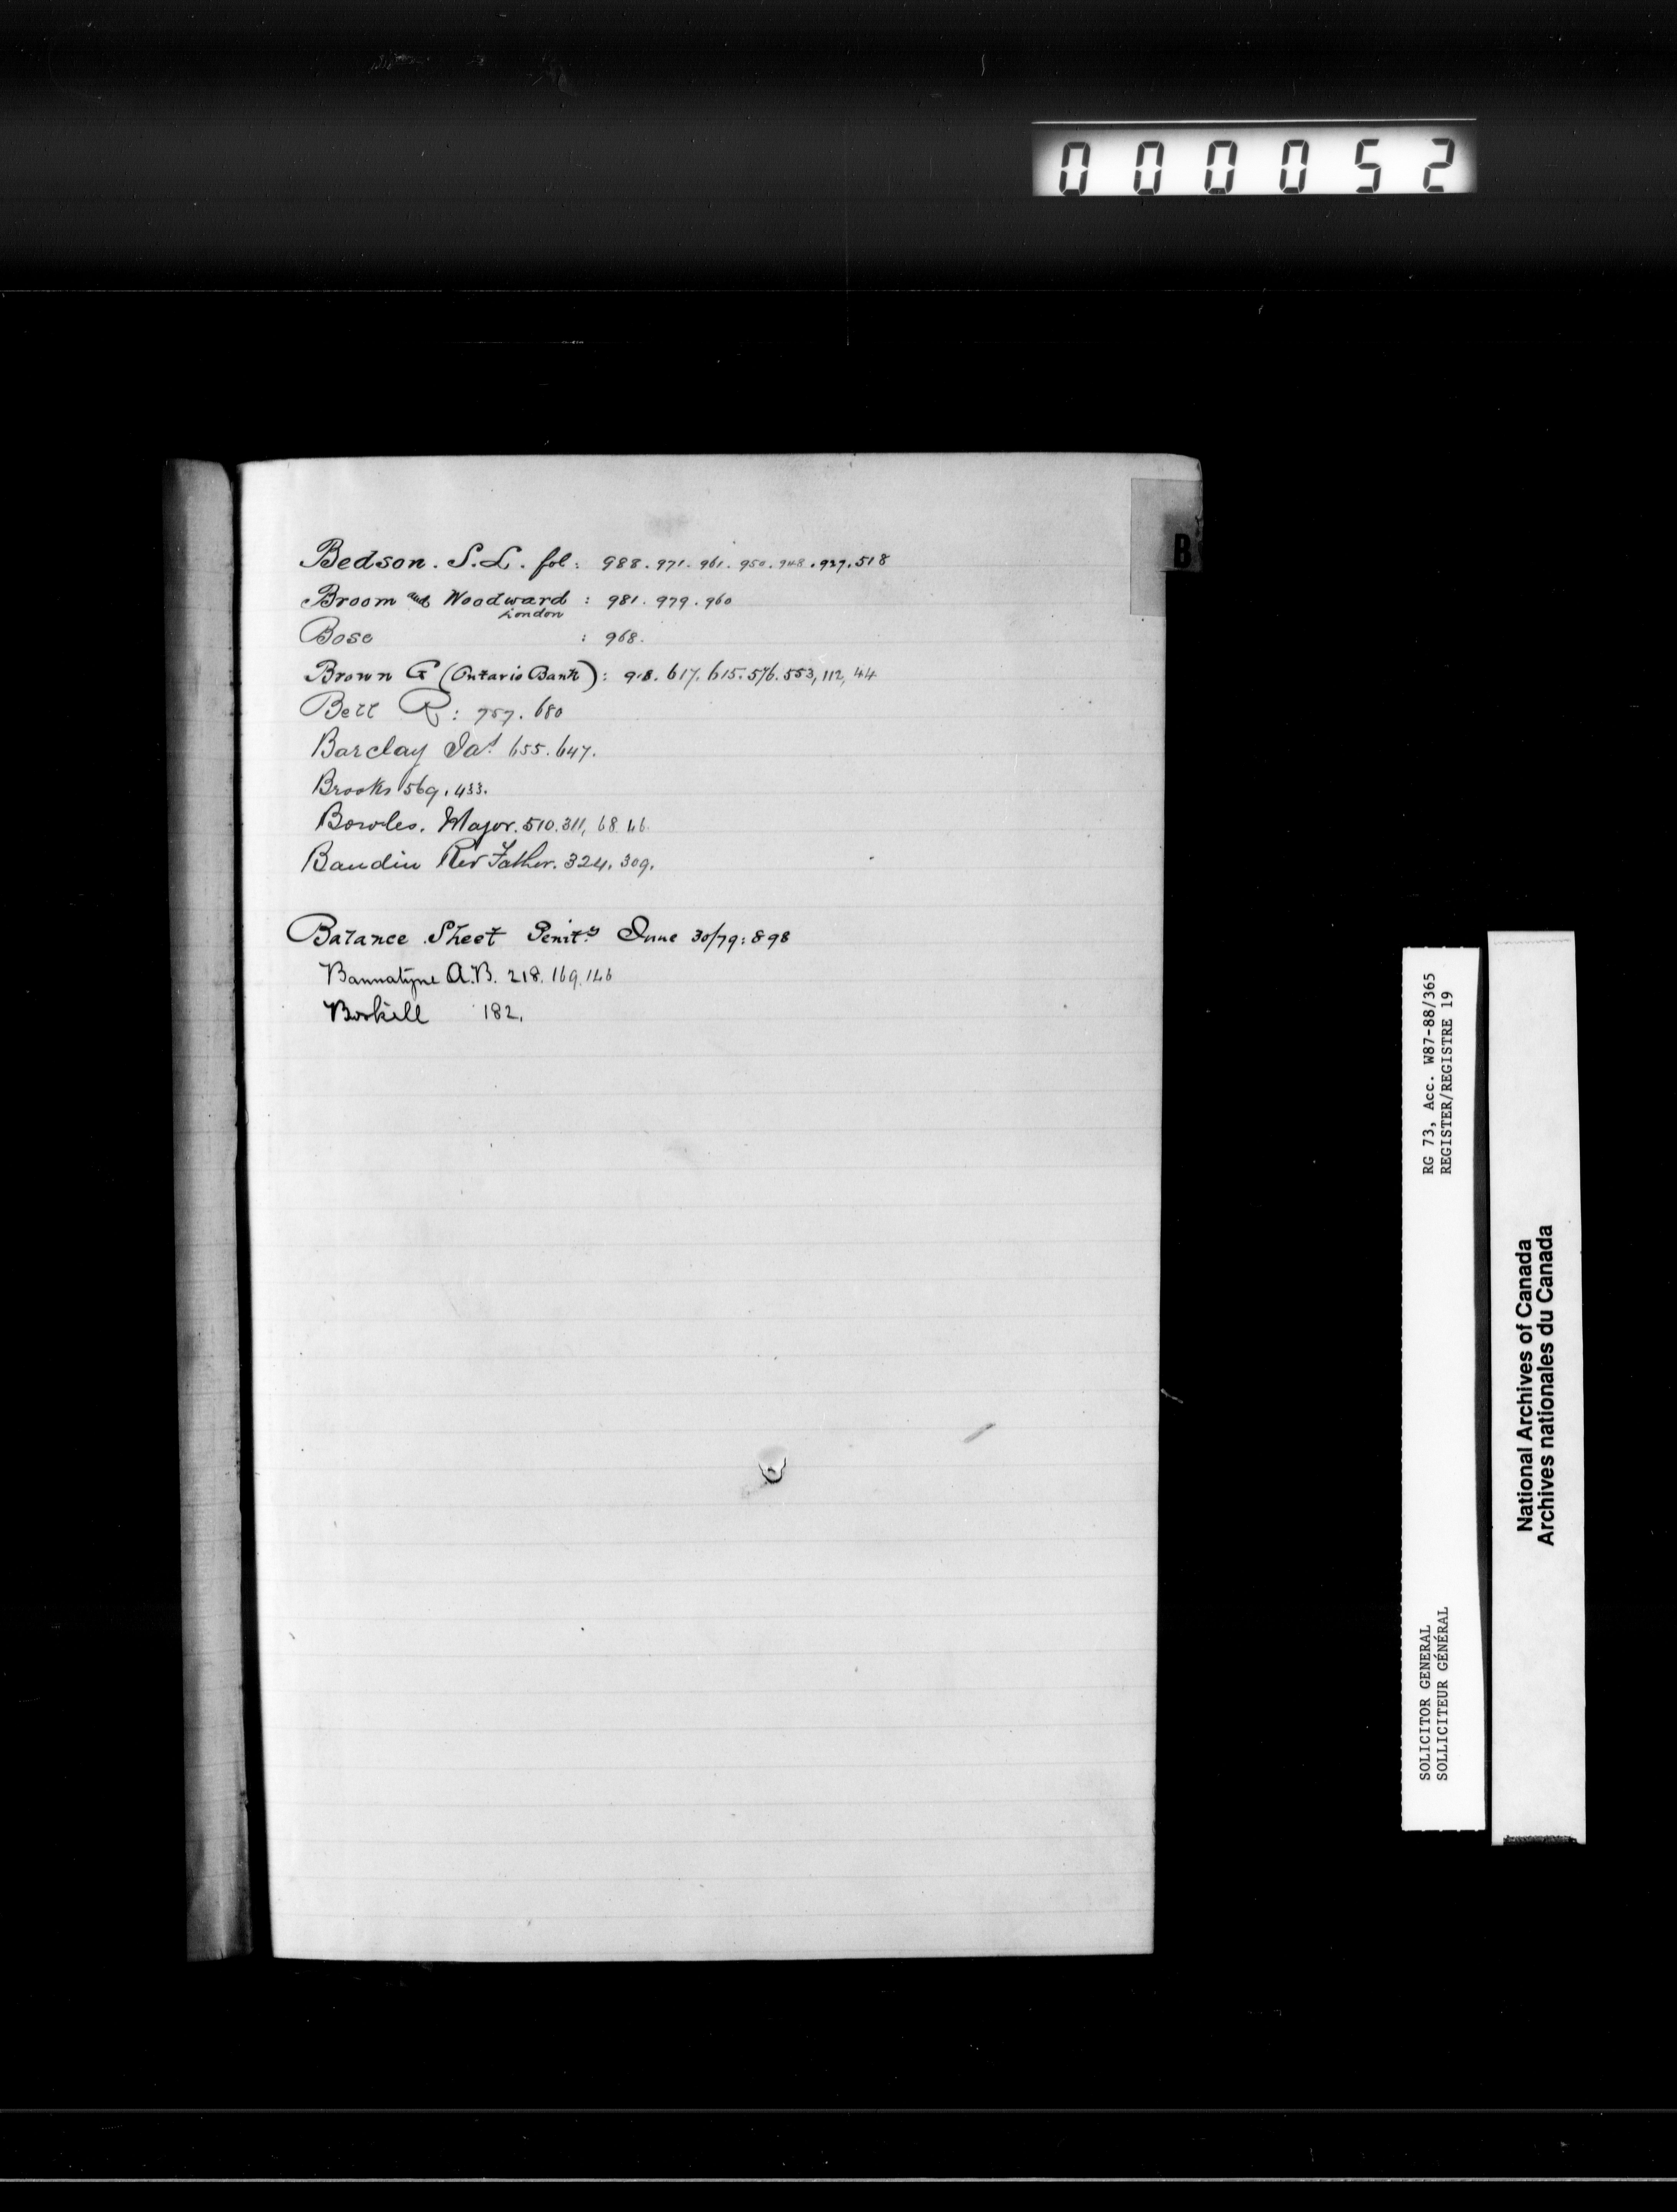 000052
B
Bedson. S.L. fol: 988. 971. 961. 950. 948. 927. 518
Broom and Woodward : 981. 979. 960
London
Bose : 968.
Brown G (Ontario Bank): 918. 617. 615. 576. 553, 112, 44
Bell R: 757. 680
Barclay Jas. 655. 647.
Brooks 569. 433.
Bowles. Major. 510. 311, 68. 46.
Baudin Rev Father. 324. 309.
Balance Sheet Penity June 30/79: 898
Bannatyne A.B. 218. 169. 146
Boskill 182.
RG 73, Acc. W87-88/365
REGISTER/REGISTRE 19
SOLICITOR GENERAL
SOLLICITEUR GÉNÉRAL
National Archives of Canada
Archives nationales du Canada